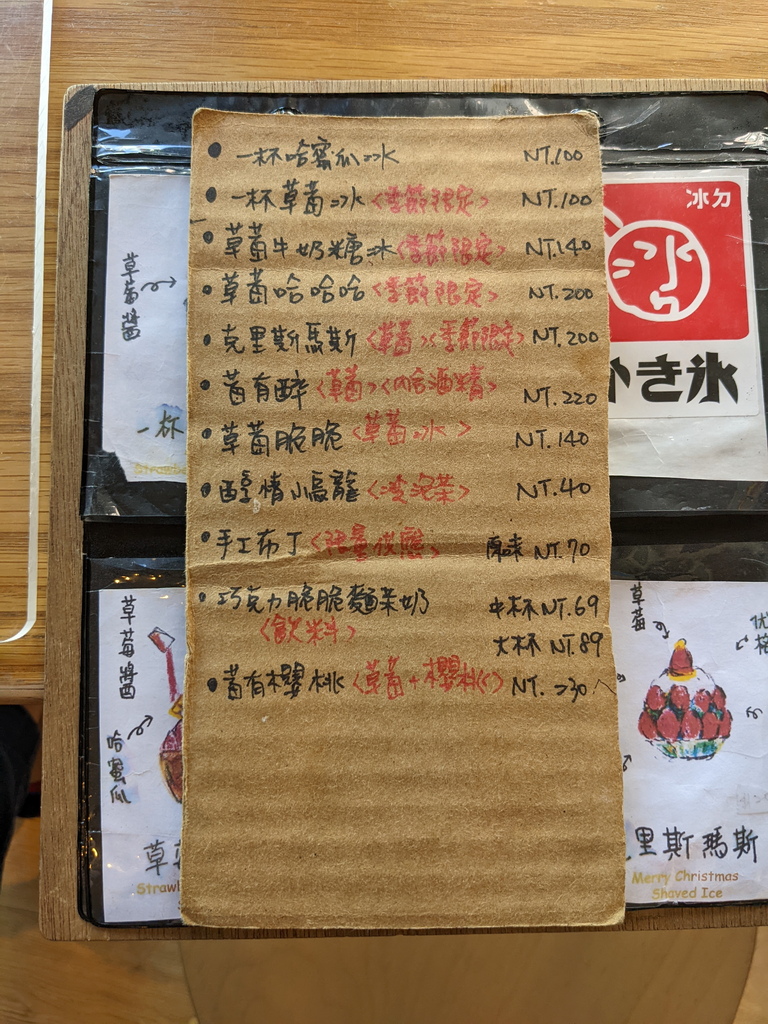 一杯哈蜜瓜冰 NT.100
一杯草莓冰<季節限定> NT.100
草莓牛奶糖冰<季節限定> NT.140
草莓哈哈哈<季節限定> NT.200
克里斯馬斯<草莓><季節限定> NT.200
莓有醉<草莓><內含酒精> NT.220
草莓脆脆<草莓冰> NT.140
醇情小烏龍<冷泡茶> NT.40
手工布丁<限量供應> 原味 NT.70
巧克力脆脆麵茶奶 中杯 NT.69
<飲料> 大杯 NT.89
莓有櫻桃<草莓+櫻桃> NT.230
草莓醬
一杯
Strawbe
草莓醬
哈蜜瓜
草
Strawb
冰ㄉ
冰
かき氷
草莓
里斯瑪斯
Merry Christmas
Shaved Ice